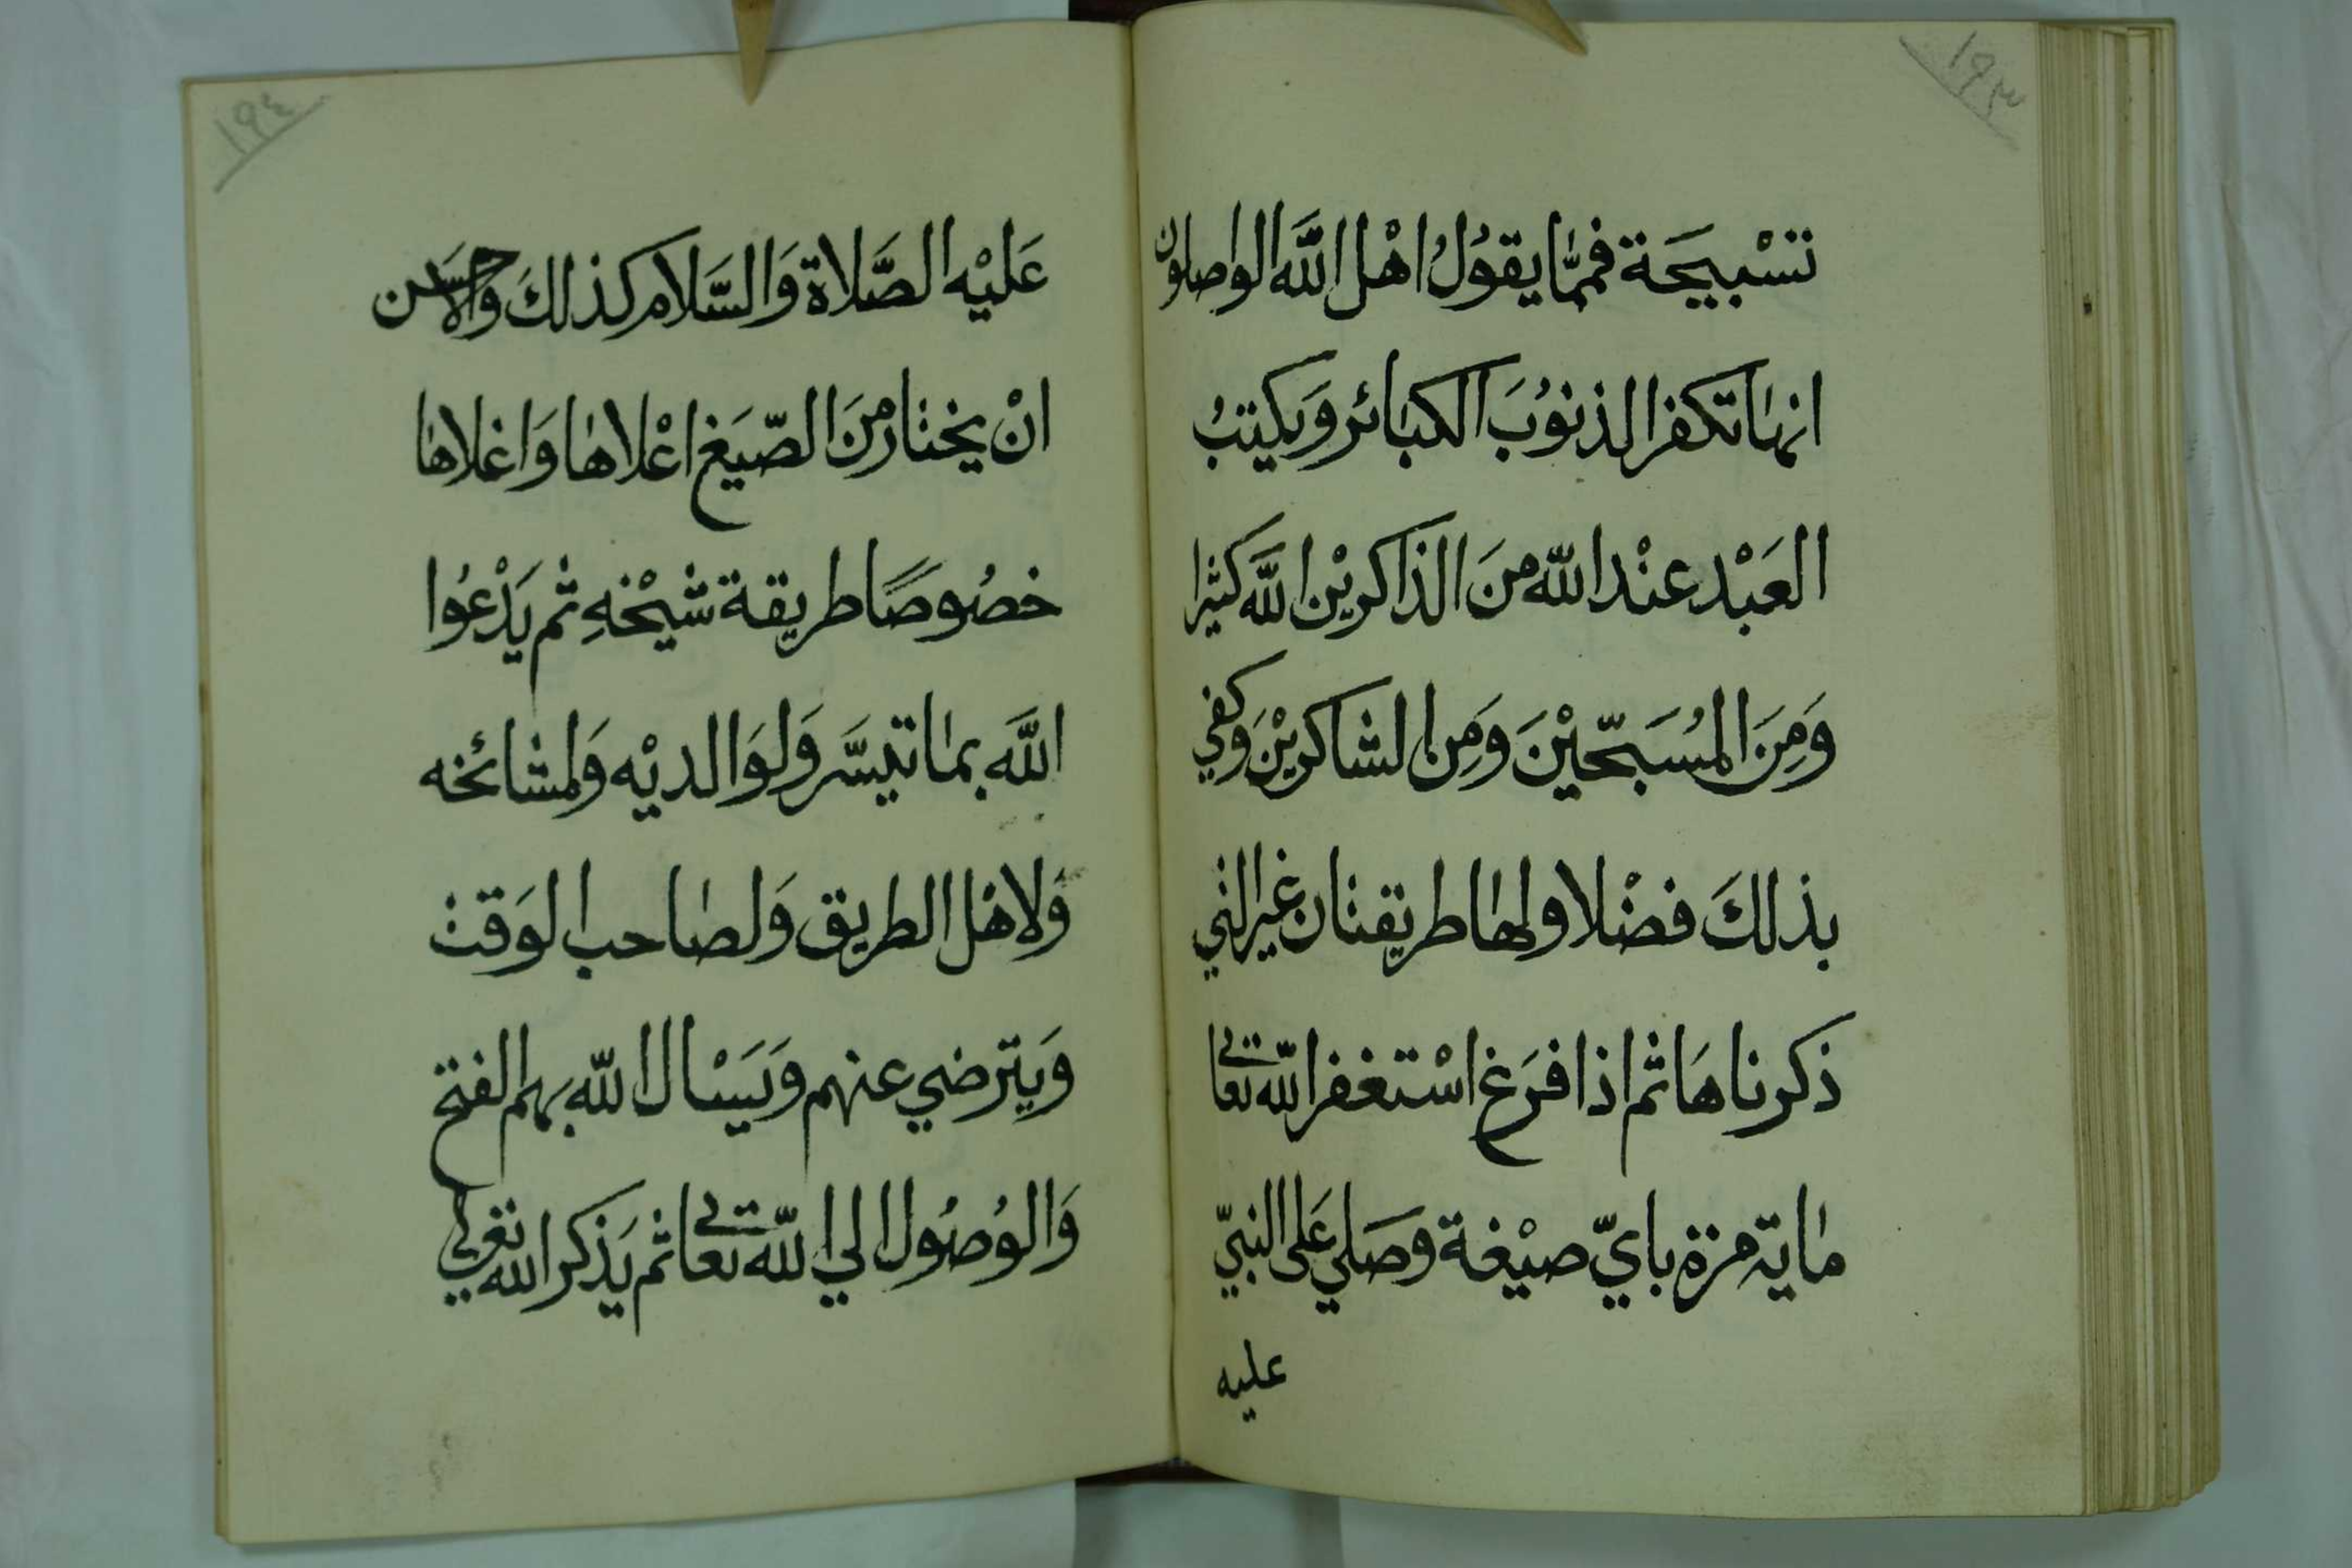 ١٩٣
تسْبيحَة فممّا يقوُلُ اهْل اللَّه الواصلون
انها تكفر الذنوُبَ الكبائر وَيكتبُ
العَبْد عنْد اللّه منَ الذاكريْن اللَّه كثيرا
وَمِنَ المُسَبّحيْنَ وَمِن الشاكريْنَ وَكفي
بذلكَ فضْلا ولها طريقتان غير التي
ذكرناهَا ثم اذا فرَغ اسْتغفر اللّه تعالي
ماية مرة بايّ صيْغة وَصَلي عَلى النبيّ
عليه
١٩٤
عَليْه الصَّلاة وَالسَّلام كذلكَ وَالاحسَن
انْ يختار منَ الصّيَغ اعْلاها وَاغلاها
خصُوصًا طريقة شيْخهِ ثم يَدْعُوا
اللَّه بما تيسَّر وَلوَالديْه وَلمشائخه
وَلاهْل الطريق وَلصاحب الوَقت
وَيترضي عنهم وَيَسْال اللّه بهم الفتح
وَالوُصُول الي اللّه تعالي ثم يَذكر الله تعالي